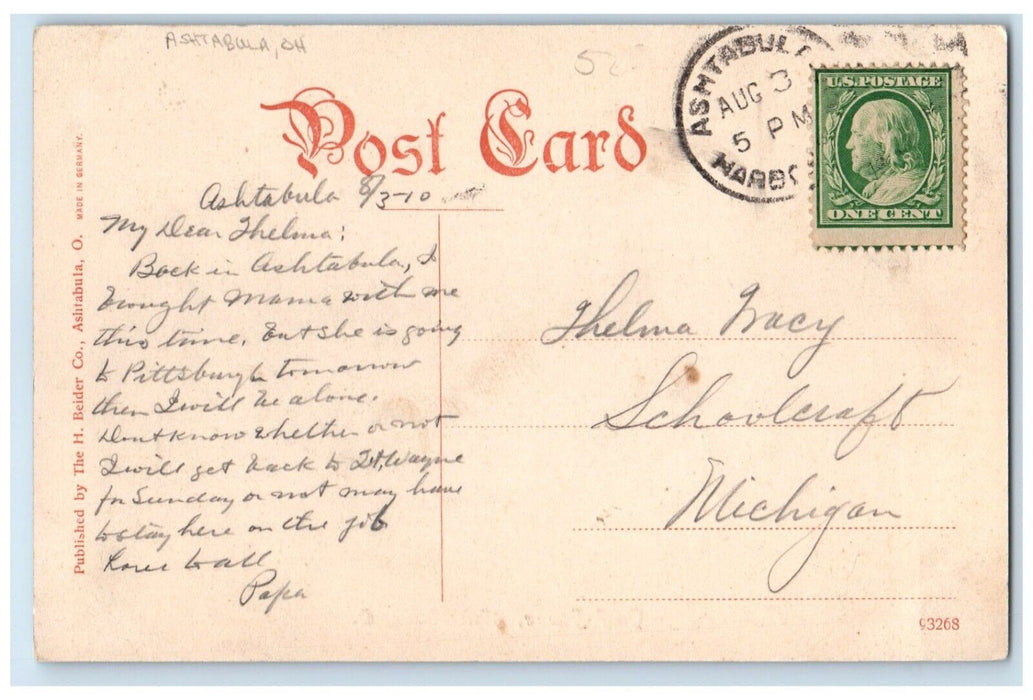 ASHTABULA, OH
52
Post Card
ASHTABULA
AUG 3
5 PM
HARBO
U.S. POSTAGE
ONE CENT
Published by The H. Beider Co., Ashtabula, O. MADE IN GERMANY.
Ashtabula 8/3-10
My Dear Thelma;
Back in Ashtabula, I
brought Mama with me
this time, But she is going
to Pittsburgh tomorrow
then I will be alone.
Dont know whether or not
I will get back to Ft. Wayne
for Sunday or not may have
to stay here on the job
Love to all
Papa
Thelma Tracy
Schoolcraft
Michigan
93268